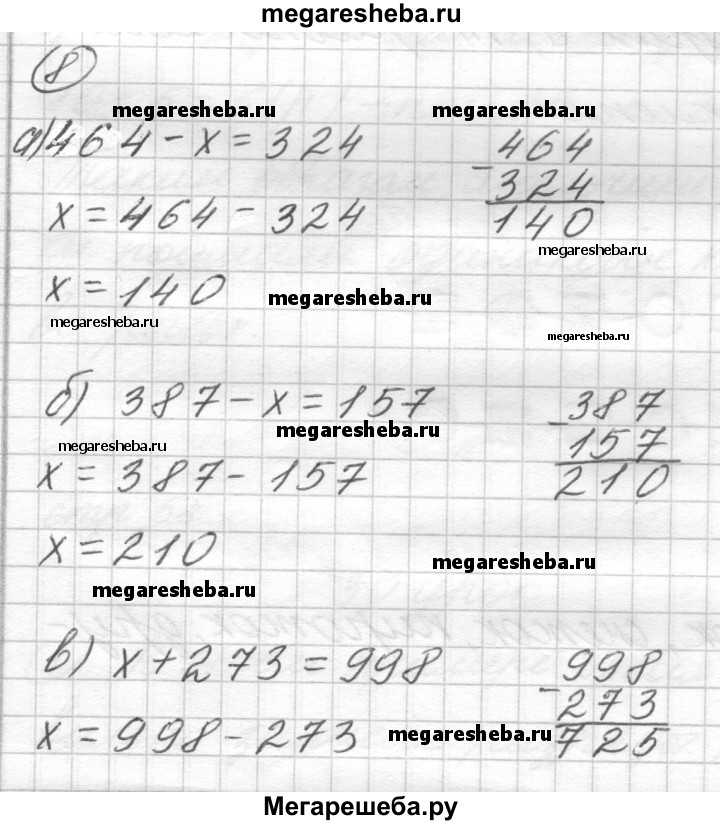 megaresheba.ru
8
megaresheba.ru megaresheba.ru
а) 464 - x = 324 464
- 324
x = 464 - 324 140
megaresheba.ru
x = 140 megaresheba.ru
megaresheba.ru megaresheba.ru
б) 387 - x = 157 - 387
megaresheba.ru 157
megaresheba.ru
x = 387 - 157 210
x = 210 megaresheba.ru
megaresheba.ru
в) x + 273 = 998 998
- 273
x = 998 - 273 megaresheba.ru 725
Мегарешеба.ру